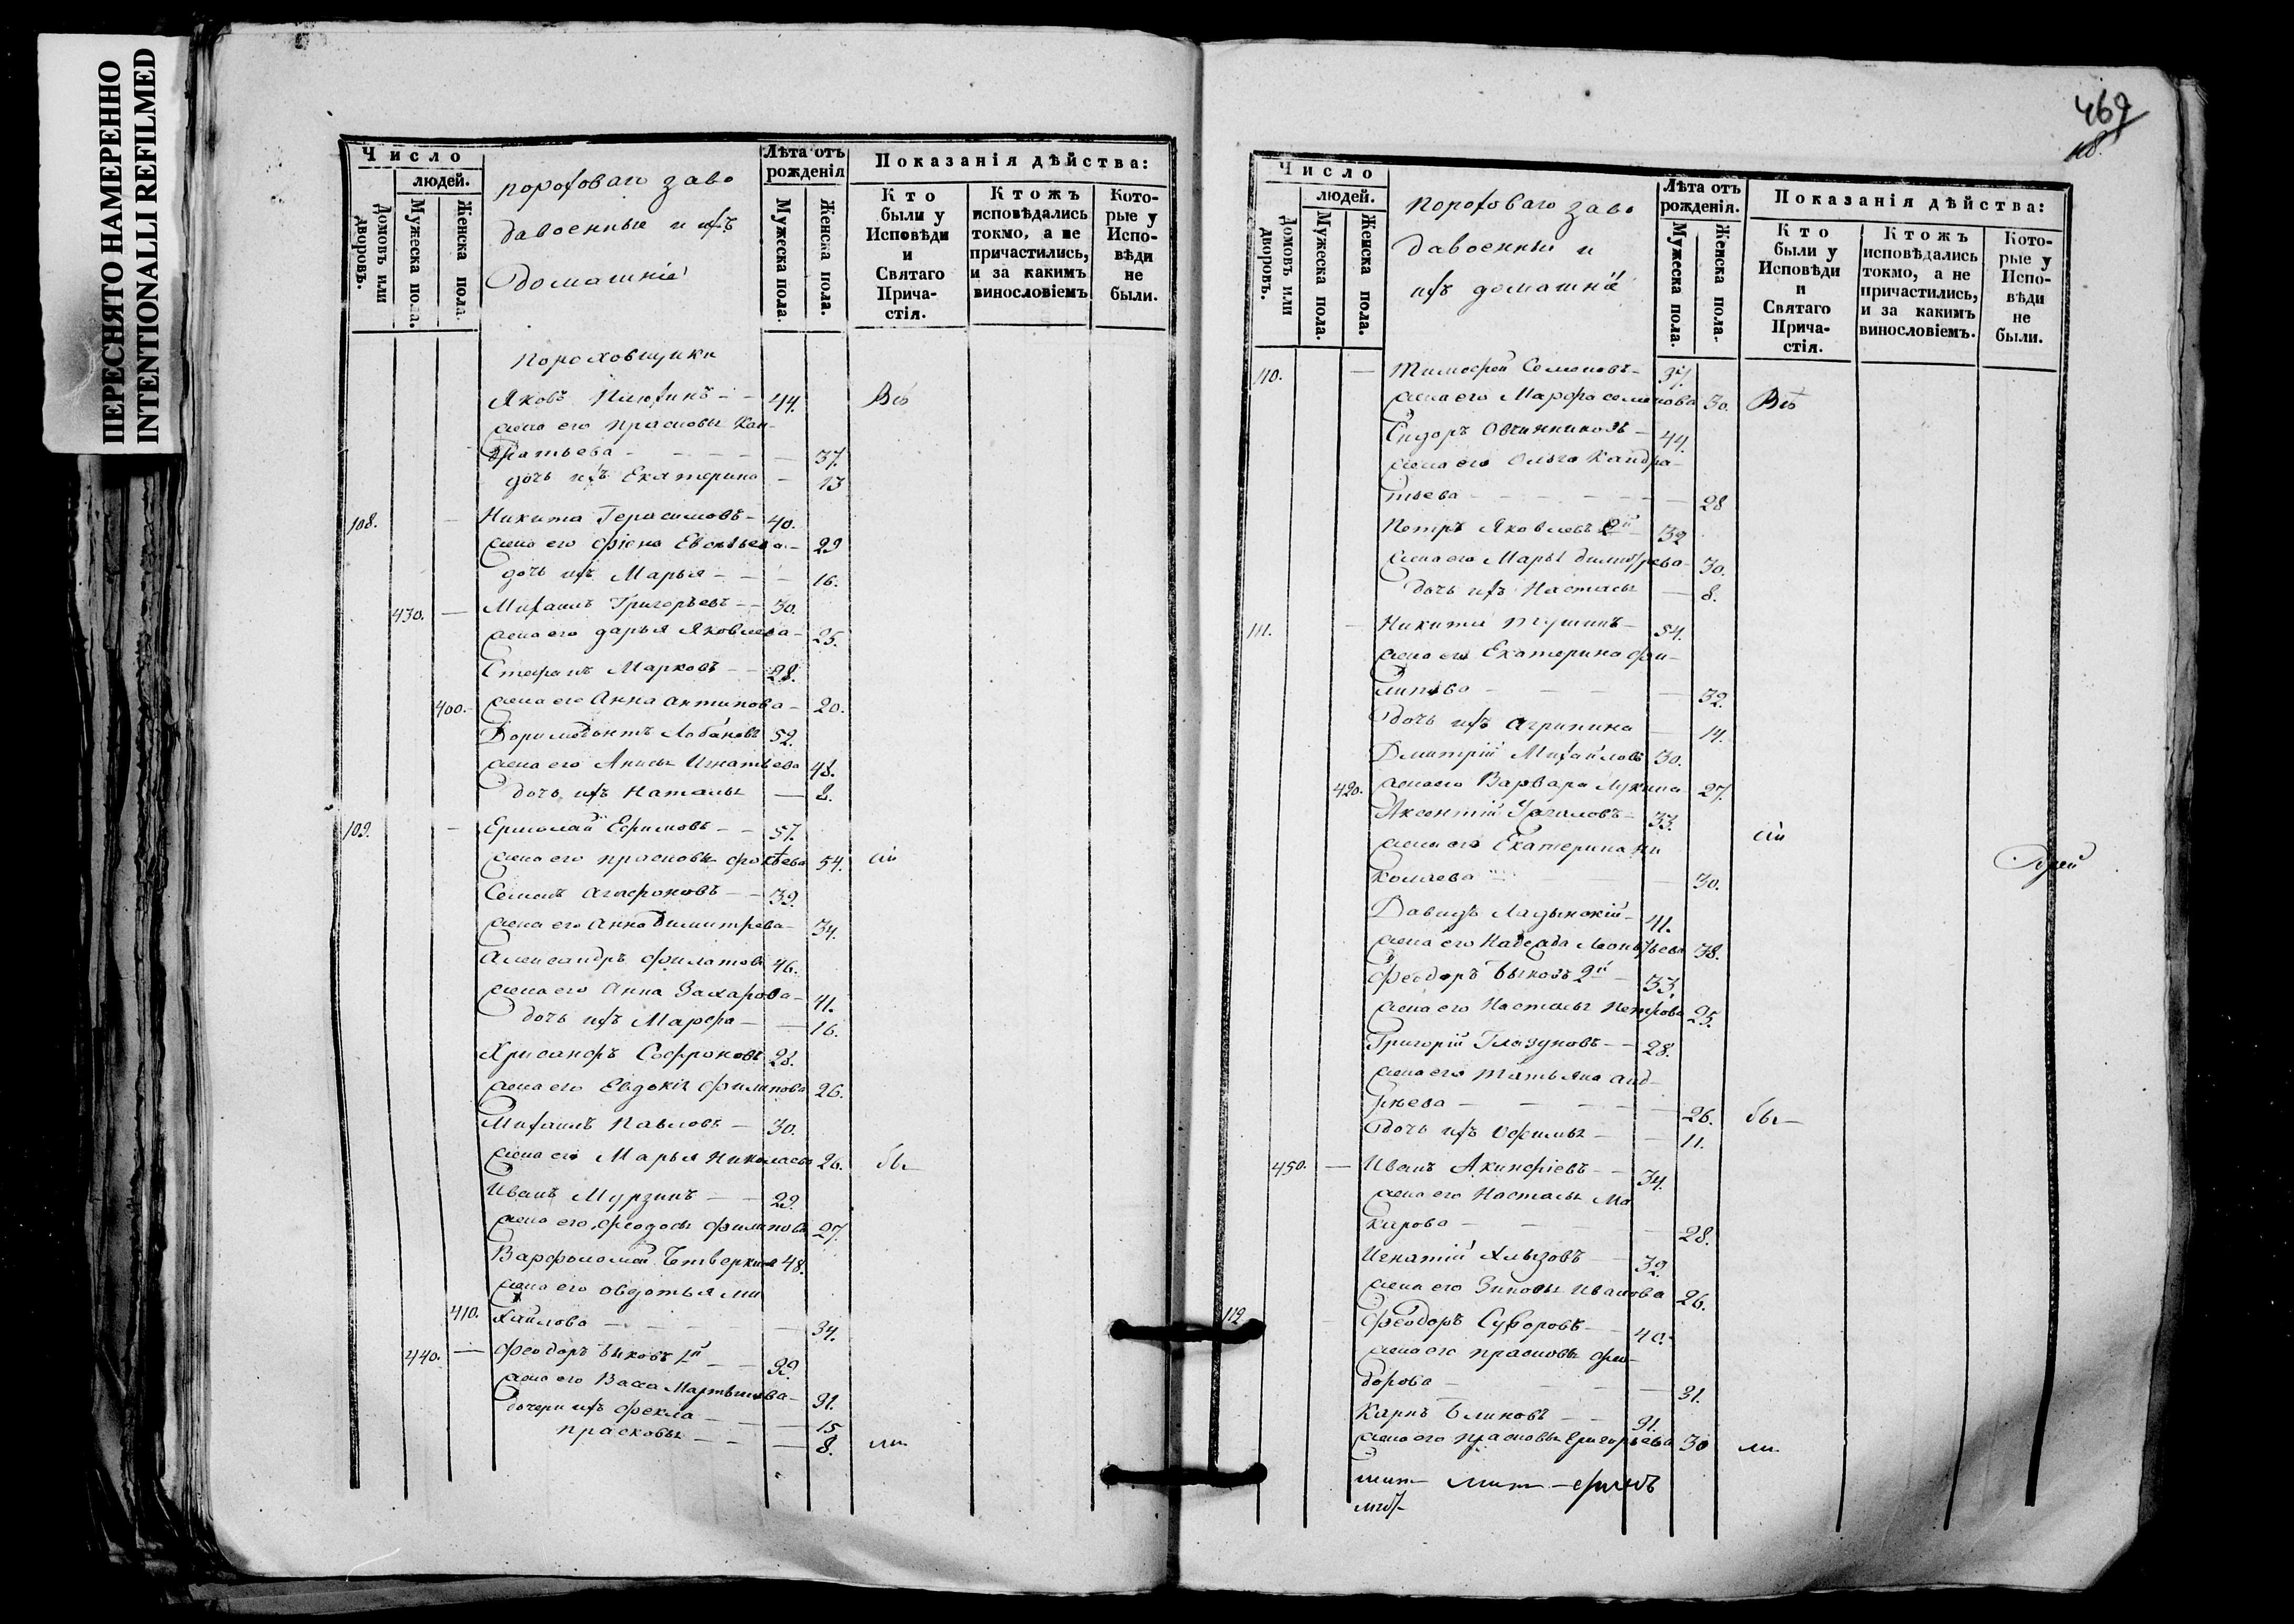 ПЕРЕСНЯТО НАМЕРЕННО
INTENTIONALLI REFILMED
Число
людей.
Домовъ или дворовъ.
Мужеска пола.
Женска пола.
пороховаго заво
давоенные и ихъ
домашнiе
Лѣта отъ рожденія
Мужеска пола.
Женска пола.
Показанія дѣйства:
Кто были у Исповѣди и Святаго Прича-стія.
Ктожъ исповѣдались токмо, а не причастились, и за какимъ винословіемъ
Кото-рые у Испо-вѣди не были.
Пороховщики
Яковъ - - 44. Всѣ
жена его Прасковья Кон-
дратьева - - - 37.
дочь ихъ Екатерина - 13
108. - Никита Герасимовъ - 40.
жена его - 29
дочь ихъ Марья - - - 16.
430. - Михаилъ Григорьевъ - - 30.
жена его дарья Яковлева - 25.
Стефанъ Марковъ - - 28.
400. - жена его Анна антипова - 20.
Доримедонтъ Лобановъ 52.
жена его Анисья Игнатьева 48.
дочь ихъ Наталья - 2.
109. - Ермолай Ефимовъ - - 57.
жена его прасковья 54. сiи
Семенъ агафоновъ - - 39.
жена его Анна Димитрева - 34.
Александръ филатовъ 46.
жена его Анна Захарова - 41.
дочь ихъ Марфа - - 16.
Хрисанфъ Софроновъ 28.
жена его Евдокiя филипова 26.
Михаилъ Павловъ - 30.
жена его Марья Николаева 26. бы-
Иванъ Мурзинъ - - 29.
жена его феодосья филипова 27.
Варфоломей Четверкинъ 48.
жена его овдотья ми
410. хайлова - - - 34.
440. - феодоръ Быковъ 1й - - 32.
жена его Васса Мартынова - 31.
дочери ихъ фекла - - - 15
прасковья - - - 8. ли.
469
Число
людей.
Домовъ или дворовъ.
Мужеска пола.
Женска пола.
пороховаго заво
давоенные и
ихъ домашнiе
Лѣта отъ рожденія.
Мужеска пола.
Женска пола.
Показанія дѣйства:
Кто были у Исповѣди и Святаго Прича-стія.
Ктожъ исповѣдались токмо, а не причастились, и за какимъ винословіемъ.
Кото-рые у Испо-вѣди не были.
110. - Тимофей Семеновъ - 37.
жена его Марфа семенова 30. Всѣ
Сидоръ Овчинниковъ - 44.
жена его Ольга Кандра-
тьева - - - - 28
Петръ Яковлевъ 2й - 32
жена его Марья димитрева - 30.
дочь ихъ Настасья - 8.
111. - Никита - 54.
жена его Екатерина фи-
липова - - - - 32.
дочь ихъ агрипина - 14.
Дмитрiй Михайловъ 30.
420. жена его Варвара Лукина - 27.
Аксентiй - 33.
жена его Екатерина Ни сiи
колаева - - - 30.
Давидъ Ладынскiй - 41.
жена его Надежда Леонтьева 38.
феодоръ Быковъ 2й - 33.
жена его Настасья петрова 25.
Григорiй Глазуновъ - - 28.
жена его Татьяна анд-
рѣева - - - - 26. бы-
дочь ихъ Офимья - - 11.
450. - Иванъ Акинфiевъ - - 34.
жена его Настасья Ма
карова - - - - 28.
Игнатiй Хлызовъ - 32.
жена его Зиновья Иванова 26.
112 феодоръ Суворовъ - 40.
жена его прасковья фео-
дорова - - - 31.
Карпъ Блиновъ - - 31.
жена его прасковья Григорьева 30 ли.